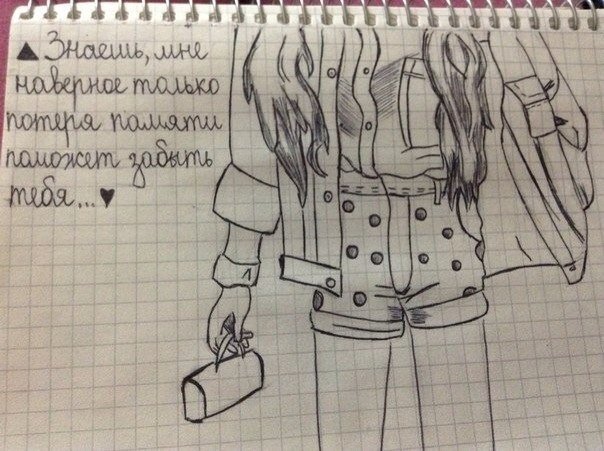 ▲ Знаешь, мне
наверное только
потеря памяти
поможет забыть
тебя... ♥